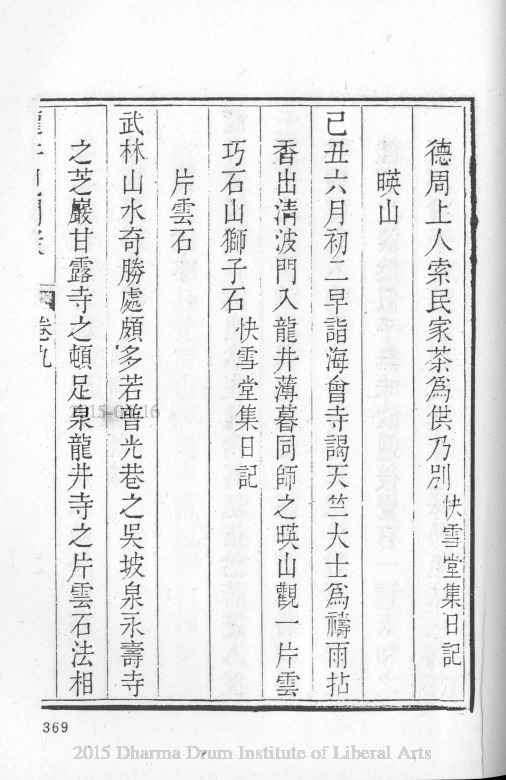 德周上人索民家茶爲供乃別 快雪堂集日記
暎山
己丑六月初二早詣海會寺謁天竺大士爲禱雨拈
香出清波門入龍井薄暮同師之暎山觀一片雲
巧石山獅子石 快雪堂集日記
片雲石
武林山水奇勝處頗多若普光巷之吳坡泉永壽寺
之芝巖甘露寺之頓足泉龍井寺之片雲石法相
卷九
2015-04-16
369
2015 Dharma Drum Institute of Liberal Arts